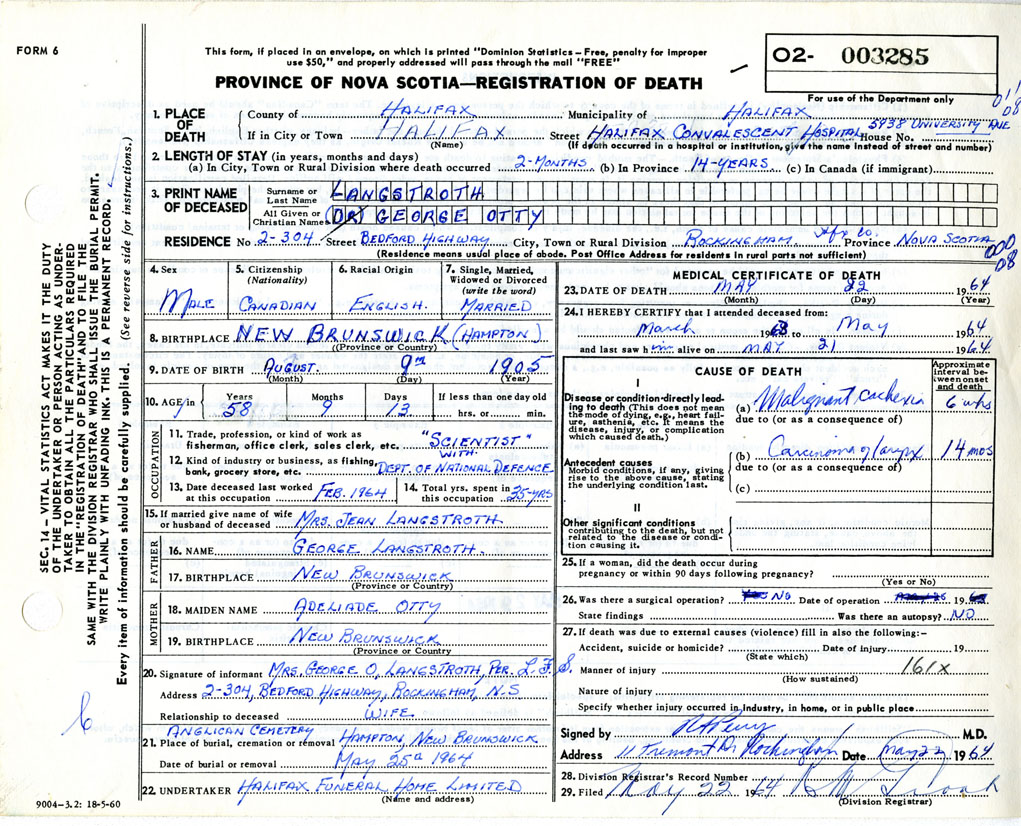 FORM 6
This form, if placed in an envelope, on which is printed "Dominion Statistics – Free, penalty for improper
use $50," and properly addressed will pass through the mail "FREE"
PROVINCE OF NOVA SCOTIA—REGISTRATION OF DEATH
02- 003285
For use of the Department only
SEC. 14 – VITAL STATISTICS ACT MAKES IT THE DUTY
OF THE UNDERTAKER OR PERSON ACTING AS UNDER-
TAKER TO OBTAIN ALL THE PARTICULARS REQUIRED
IN THE "REGISTRATION OF DEATH" AND TO FILE THE
SAME WITH THE DIVISION REGISTRAR WHO SHALL ISSUE THE BURIAL PERMIT.
WRITE PLAINLY WITH UNFADING INK. THIS IS A PERMANENT RECORD.
Every item of information should be carefully supplied. (See reverse side for instructions.)
1. PLACE OF DEATH
County of HALIFAX Municipality of HALIFAX
If in City or Town HALIFAX Street HALIFAX CONVALESCENT HOSPITAL House No. 5938 UNIVERSITY AVE
(Name) (If death occurred in a hospital or institution, give the name instead of street and number)
2. LENGTH OF STAY (in years, months and days)
(a) In City, Town or Rural Division where death occurred 2-MONTHS (b) In Province 14-YEARS (c) In Canada (if immigrant)
3. PRINT NAME OF DECEASED
Surname or Last Name LANGSTROTH
All Given or Christian Names (DR) GEORGE OTTY
RESIDENCE No 2-304 Street BEDFORD HIGHWAY City, Town or Rural Division ROCKINGHAM Hfx Co. Province NOVA SCOTIA
(Residence means usual place of abode. Post Office Address for residents in rural parts not sufficient)
4. Sex MALE
5. Citizenship (Nationality) CANADIAN
6. Racial Origin ENGLISH.
7. Single, Married, Widowed or Divorced (write the word) MARRIED
8. BIRTHPLACE NEW BRUNSWICK (HAMPTON)
(Province or Country)
9. DATE OF BIRTH AUGUST. 9TH 1905
(Month) (Day) (Year)
10. AGE in Years 58 Months 9 Days 13 If less than one day old hrs. or min.
OCCUPATION
11. Trade, profession, or kind of work as
fisherman, office clerk, sales clerk, etc. "SCIENTIST"
WITH
12. Kind of industry or business, as fishing,
bank, grocery store, etc. DEPT. OF NATIONAL DEFENCE
13. Date deceased last worked at this occupation FEB. 1964
14. Total yrs. spent in this occupation 25-YRS
15. If married give name of wife
or husband of deceased MRS. JEAN LANGSTROTH
FATHER
16. NAME GEORGE LANGSTROTH.
17. BIRTHPLACE NEW BRUNSWICK
(Province or Country)
MOTHER
18. MAIDEN NAME ADELIADE OTTY
19. BIRTHPLACE NEW BRUNSWICK
(Province or Country
20. Signature of informant MRS. GEORGE O. LANGSTROTH, PER. L.F.S.
Address 2-304, BEDFORD HIGHWAY, ROCKINGHAM, N.S
Relationship to deceased WIFE.
ANGLICAN CEMETERY
21. Place of burial, cremation or removal HAMPTON, NEW BRUNSWICK
Date of burial or removal MAY 25th 1964
22. UNDERTAKER HALIFAX FUNERAL HOME LIMITED
(Name and address)
9004–3.2: 18-5-60
MEDICAL CERTIFICATE OF DEATH
23. DATE OF DEATH MAY 22 1964
(Month) (Day) (Year)
24. I HEREBY CERTIFY that I attended deceased from:
March 1963 to May 1964
and last saw him alive on MAY 21 1964
CAUSE OF DEATH
Approximate interval between onset and death
I
Disease or condition-directly lead-
ing to death (This does not mean
the mode of dying, e.g., heart fail-
ure, asthenia, etc. It means the
disease, injury, or complication
which caused death.)
(a) Malignant cachexia 6 wks
due to (or as a consequence of)
Antecedent causes
Morbid conditions, if any, giving
rise to the above cause, stating
the underlying condition last.
(b) Carcinoma of larynx 14 mos
due to (or as a consequence of)
(c)
II
Other significant conditions
contributing to the death, but not
related to the disease or condi-
tion causing it.
25. If a woman, did the death occur during
pregnancy or within 90 days following pregnancy?
(Yes or No)
26. Was there a surgical operation? NO Date of operation 19
State findings Was there an autopsy? NO
27. If death was due to external causes (violence) fill in also the following:–
Accident, suicide or homicide? Date of injury 19
(State which)
Manner of injury 161X
(How sustained)
Nature of injury
Specify whether injury occurred in industry, in home, or in public place
Signed by M.D.
Address 11 Tremont Dr Rockingham Date May 22 1964
28. Division Registrar's Record Number
29. Filed May 22 1964
(Division Registrar)